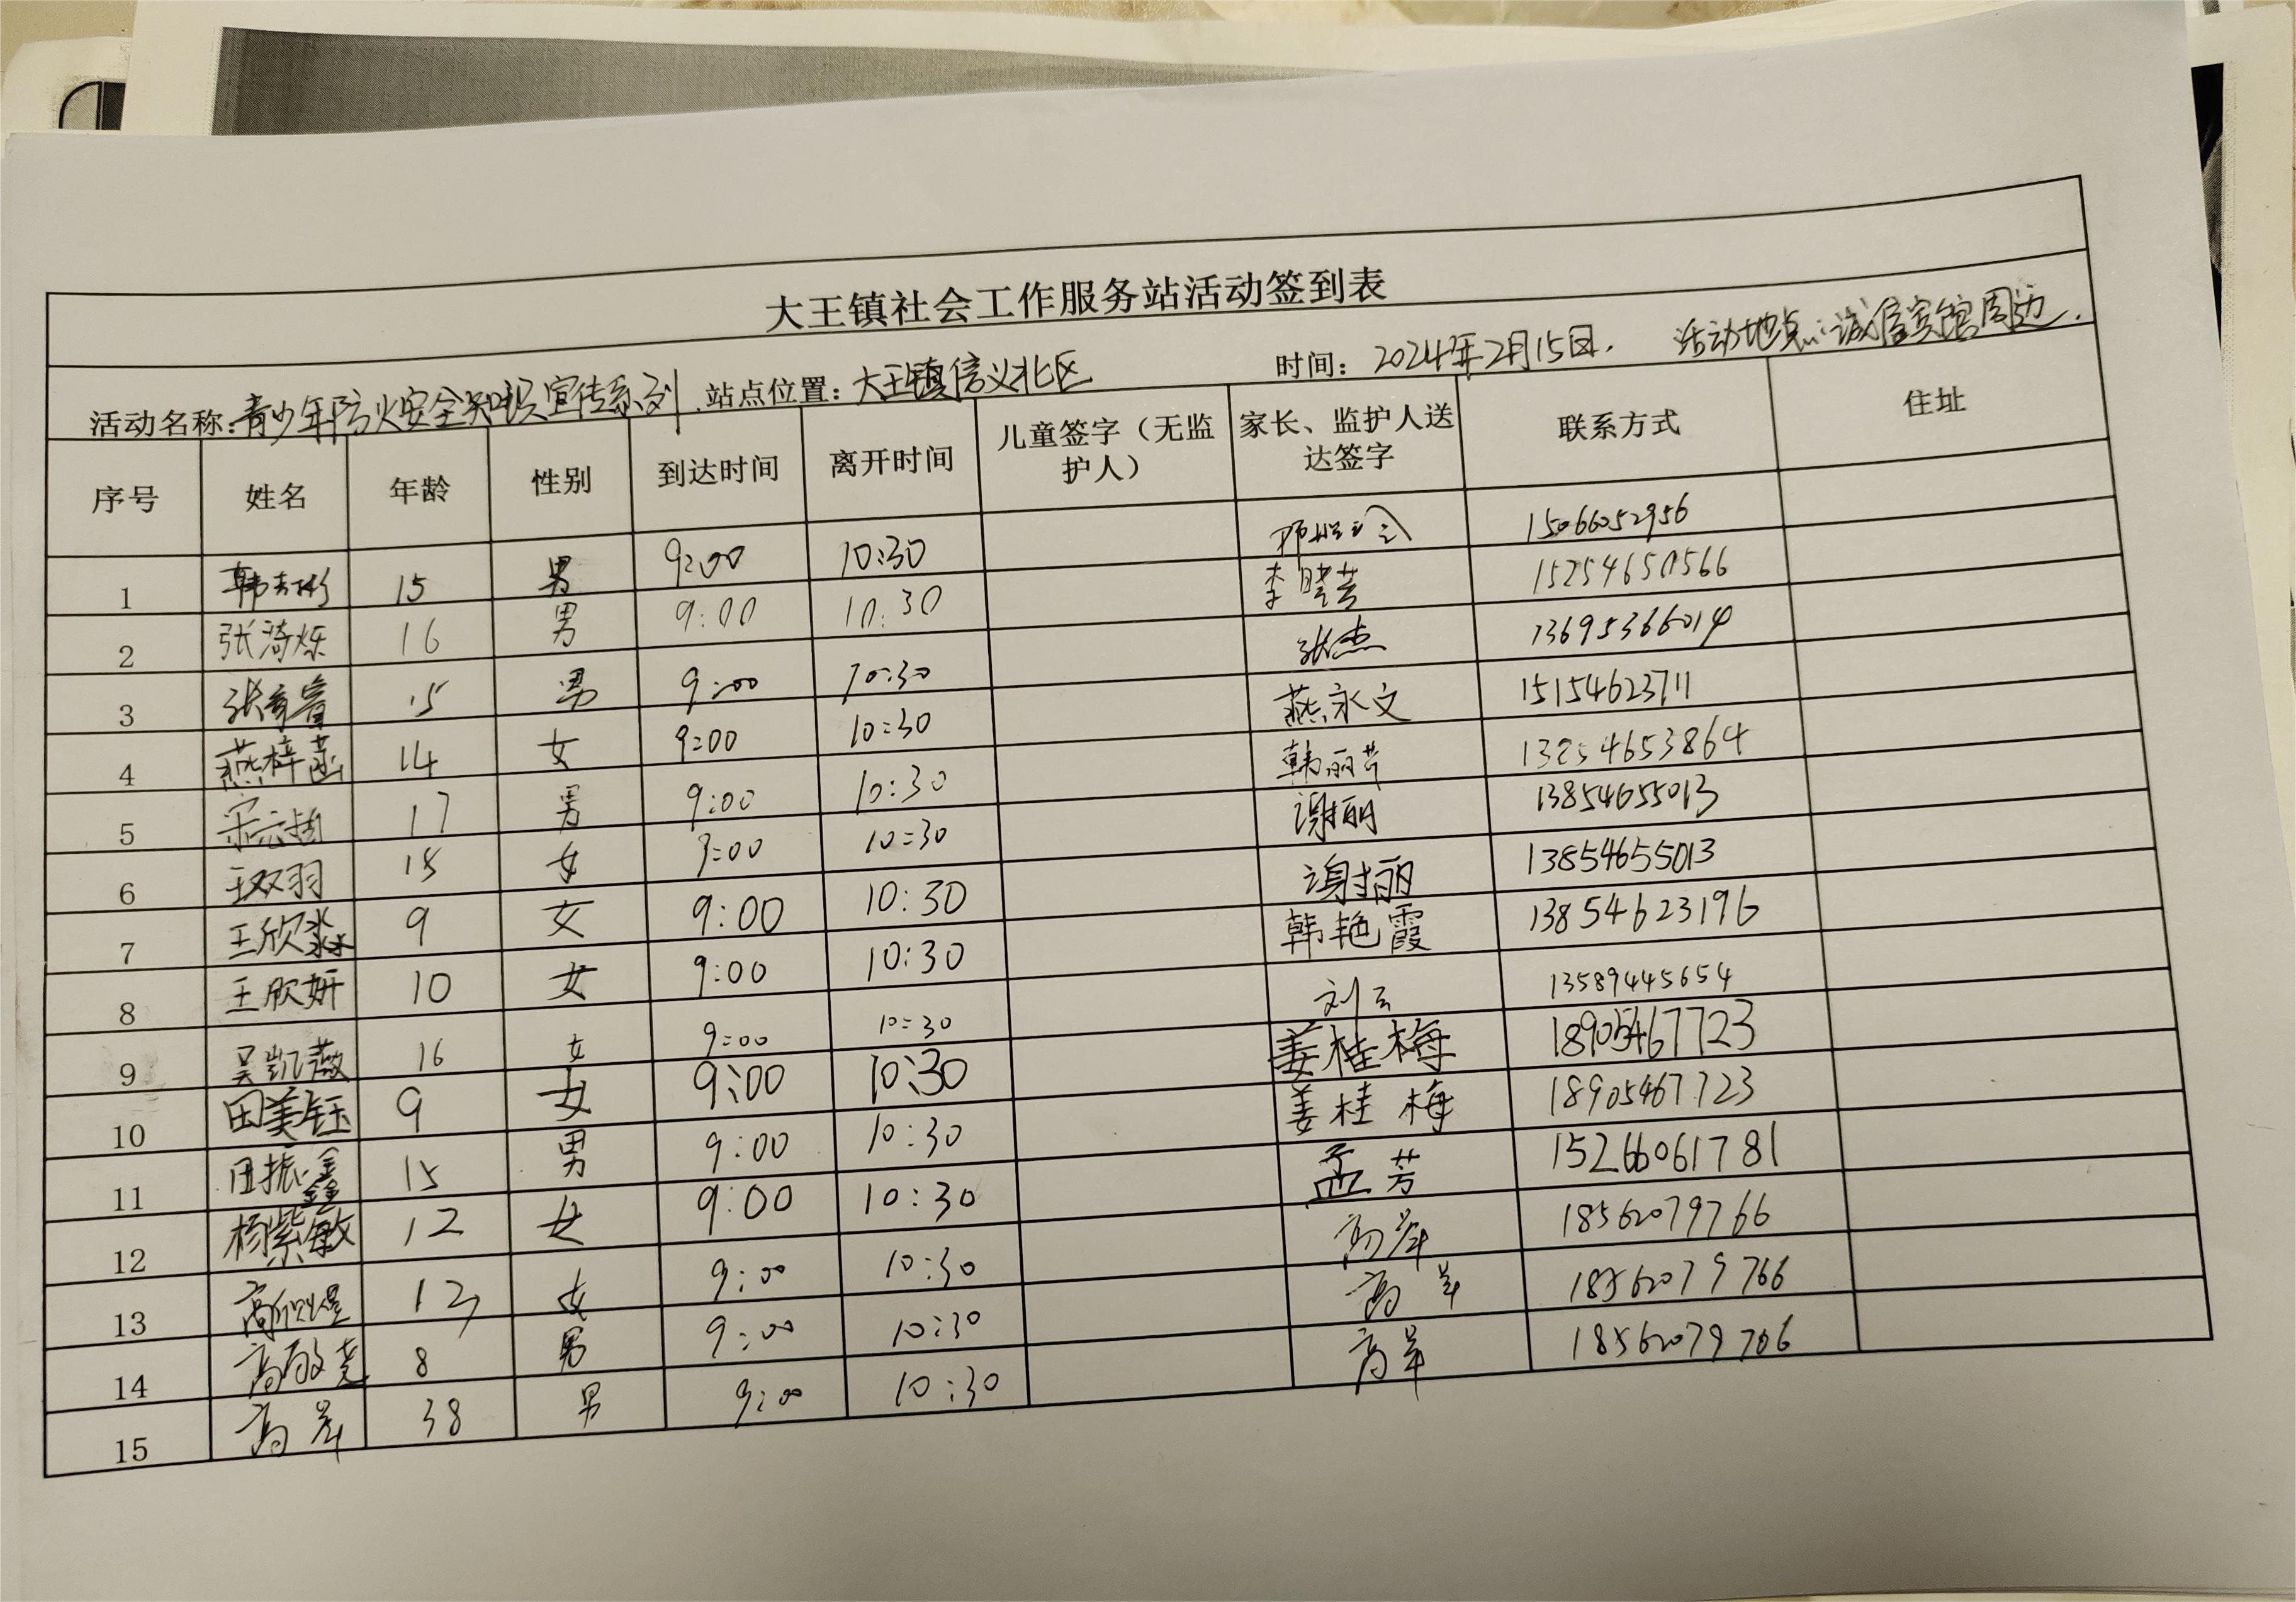 大王镇社会工作服务站活动签到表
活动名称:青少年防火安全知识宣传系列. 站点位置:大王镇信义北区 时间: 2024年2月15日. 活动地点:诚信宾馆周边.
序号 姓名 年龄 性别 到达时间 离开时间 儿童签字（无监护人） 家长、监护人送达签字 联系方式 住址
1 15 男 9:00 10:30 15066052956
2 张漪烁 16 男 9:00 10:30 李晓芸 15254650566
3 15 男 9:00 10:30 张杰 13695366014
4 燕梓菡 14 女 9:00 10:30 燕永文 15154623711
5 17 男 9:00 10:30 韩丽芹 13254653864
6 王双羽 15 女 9:00 10:30 谢丽 13854655013
7 王欣淼 9 女 9:00 10:30 谢丽 13854655013
8 王欣妍 10 女 9:00 10:30 韩艳霞 13854623196
9 吴凯薇 16 女 9:00 10:30 刘云 13589445654
10 田美钰 9 女 9:00 10:30 姜桂梅 18905467723
11 田振鑫 15 男 9:00 10:30 姜桂梅 18905467723
12 杨紫敏 12 女 9:00 10:30 孟芳 15266061781
13 高欣煜 12 女 9:00 10:30 18562079766
14 8 男 9:00 10:30 18562079766
15 38 男 9:00 10:30 18562079766